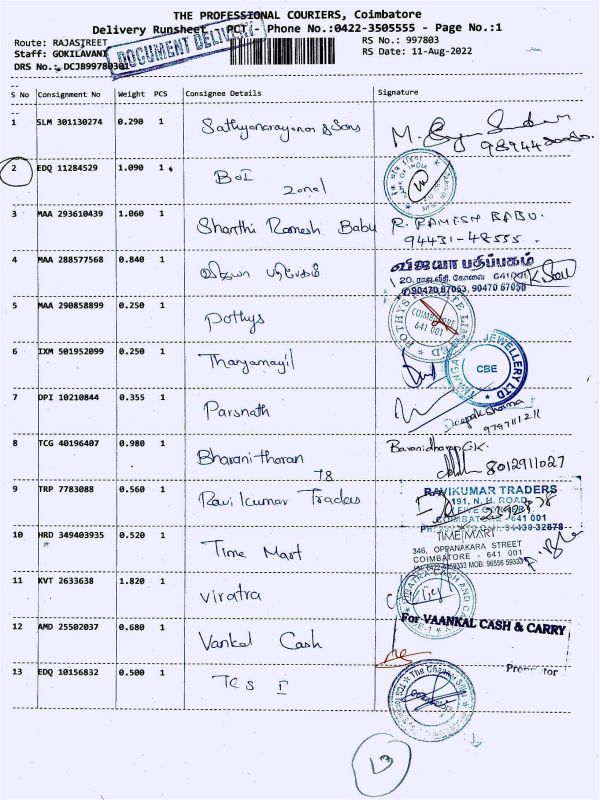 THE PROFESSIONAL COURIERS, Coimbatore
Delivery Runsheet PCT - Phone No.:0422-3505555 - Page No.:1
Route: RAJASTREET RS No.: 997803
Staff: GOKILAVANI DOCUMENT DELIVERY RS Date: 11-Aug-2022
DRS No.: DCJB99780301
S No Consignment No Weight PCS Consignee Details Signature
1 SLM 301130274 0.290 1 Sathyanarayanan & Sons
2 EDQ 11284529 1.090 1 BOI
Zonal
3 MAA 293610439 1.060 1 Shanthi Ramesh Babu R. RAMESH BABU.
94431-48555.
4 MAA 288577568 0.840 1 விஜயா பதிப்பகம் விஜயா பதிப்பகம்
20, ராஜ வீதி, கோவை 641001
90470 87053, 90470 87058
5 MAA 290858899 0.250 1 Pothys
COIMBATORE
641 001
6 IXM 501952099 0.250 1 Thangamayil JEWELLERY LTD
CBE
7 DPI 10210844 0.355 1 Parsnath Deepak Sharma
8 TCG 40196407 0.980 1 Bharanitharan
78 8012911027
9 TRP 7783088 0.560 1 Ravi Kumar Traders RAVIKUMAR TRADERS
191, N. H. ROAD
COIMBATORE - 641 001
10 HRD 349403935 0.520 1 Time Mart TIME MART
346, OPPANAKARA STREET
COIMBATORE - 641 001
11 KVT 2633638 1.820 1 Viratra
12 AMD 25502037 0.680 1 Vankal Cash For VAANKAL CASH & CARRY
13 EDQ 10156832 0.500 1 TCS I
13